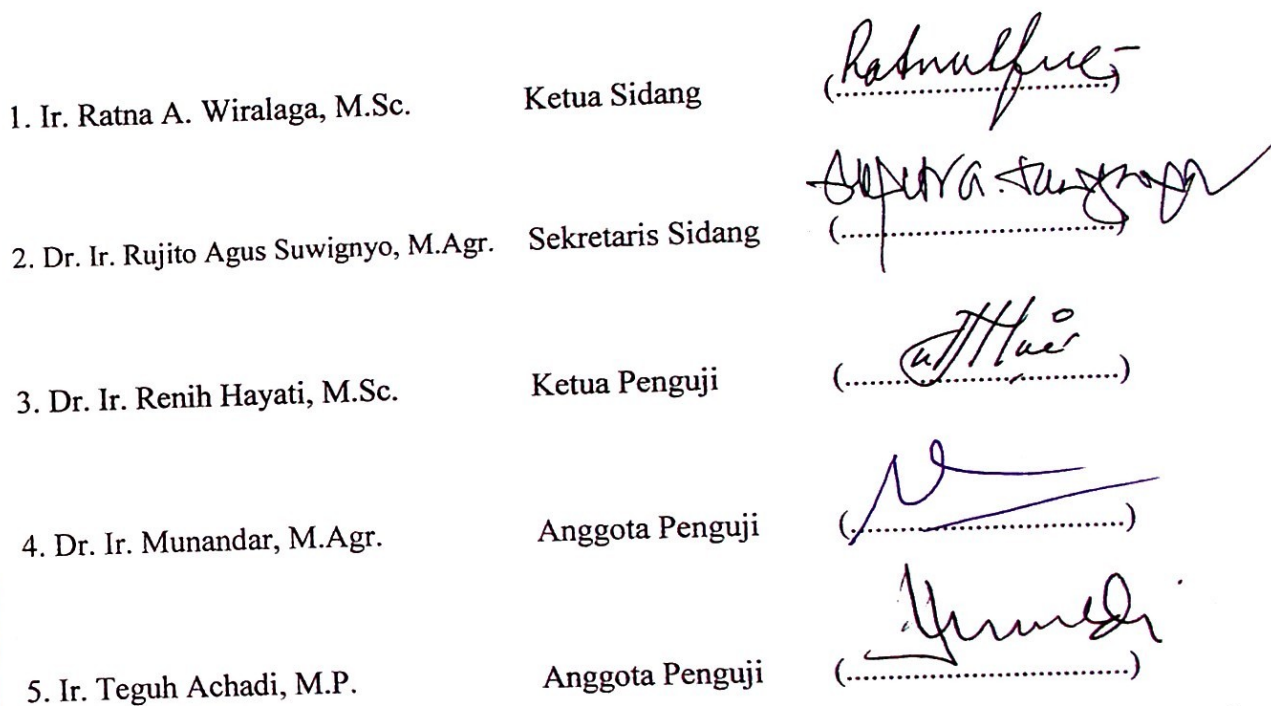 1. Ir. Ratna A. Wiralaga, M.Sc. Ketua Sidang (..............................)
2. Dr. Ir. Rujito Agus Suwignyo, M.Agr. Sekretaris Sidang (..............................)
3. Dr. Ir. Renih Hayati, M.Sc. Ketua Penguji (..............................)
4. Dr. Ir. Munandar, M.Agr. Anggota Penguji (..............................)
5. Ir. Teguh Achadi, M.P. Anggota Penguji (..............................)